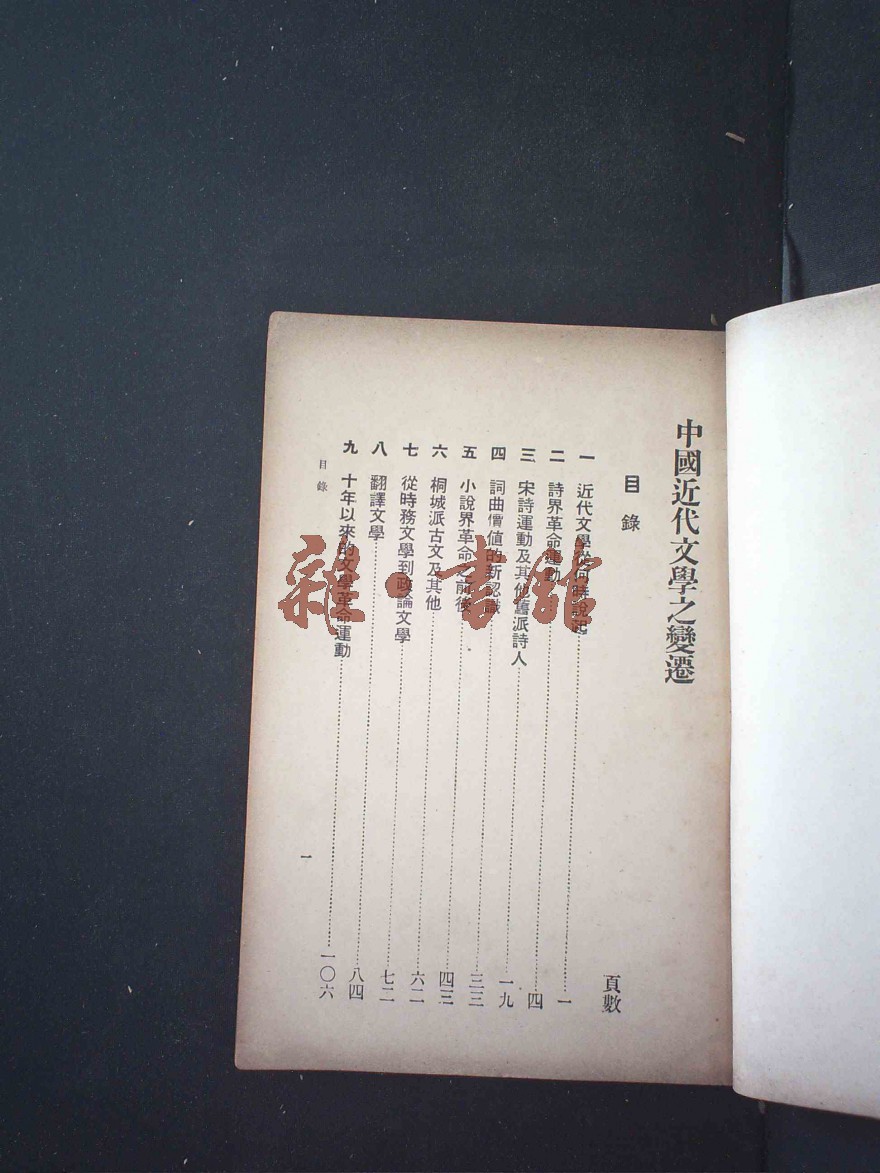 中國近代文學之變遷
目錄
頁數
一 近代文學從何時說起……一
二 詩界革命運動……四
三 宋詩運動及其他舊派詩人……一九
四 詞曲價値的新認識……三三
五 小說界革命之前後……四三
六 桐城派古文及其他……六二
七 從時務文學到政論文學……七二
八 翻譯文學……八四
九 十年以來的文學革命運動……一〇六
目錄
一
雜·書館